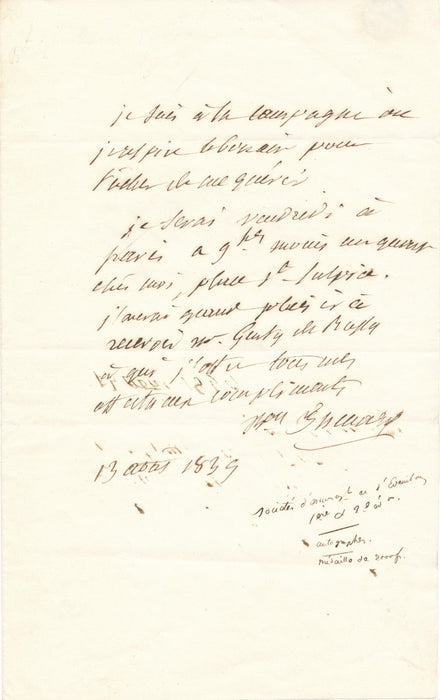 je suis à la campagne où
j'aspire le bon air pour
tâcher de me guérir
je serai vendredi à
paris a 9 hes moins un quart
chès moi, place St Sulpice.
j'aurai grand plaisir à
recevoir mr. de
à qui j'offre tous mes
affectueux compliments
13 août 1839
société d'
autographes.
médaille de